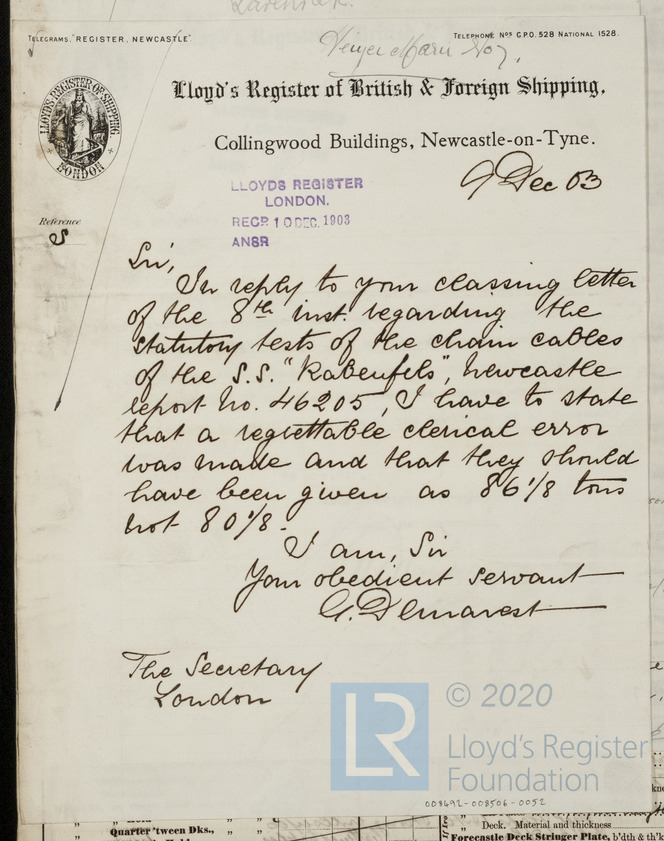 TELEGRAMS, "REGISTER, NEWCASTLE".
TELEPHONE Nos G.P.O. 528 NATIONAL 1528.
Lloyd's Register of British & Foreign Shipping,
LLOYD'S REGISTER OF SHIPPING
LONDON
Collingwood Buildings, Newcastle-on-Tyne.
9 Dec 03
LLOYDS REGISTER
LONDON.
RECD. 10 DEC. 1903
ANSR
Reference
S
Sir,
In reply to your classing letter
of the 8th inst. regarding the
statutory tests of the chain cables
of the S.S. "Rabenfels", Newcastle
report No. 46205, I have to state
that a regrettable clerical error
was made and that they should
have been given as 86 1/8 tons
not 80 1/8.
I am, Sir
Your obedient servant
G. Demarest
The Secretary
London
LR
© 2020
Lloyd's Register
Foundation
008692-008506-0052
Quarter 'tween Dks., " "
" Deck. Material and thickness
Forecastle Deck Stringer Plate, b'dth & th'k